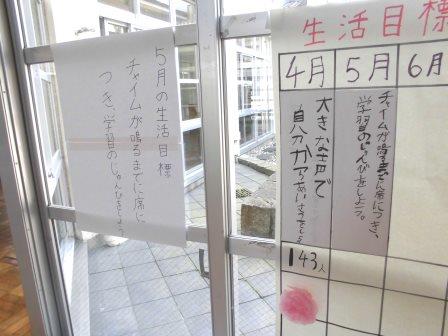 ５月の生活目標
チャイムが鳴るまでに席に
つき、学習のじゅんびをしよう
生活目標
4月
5月
6月
大きな声で
自分からあいさつをしよう
チャイムが鳴るまでに席につき、
学習のじゅんびをしよう。
143人